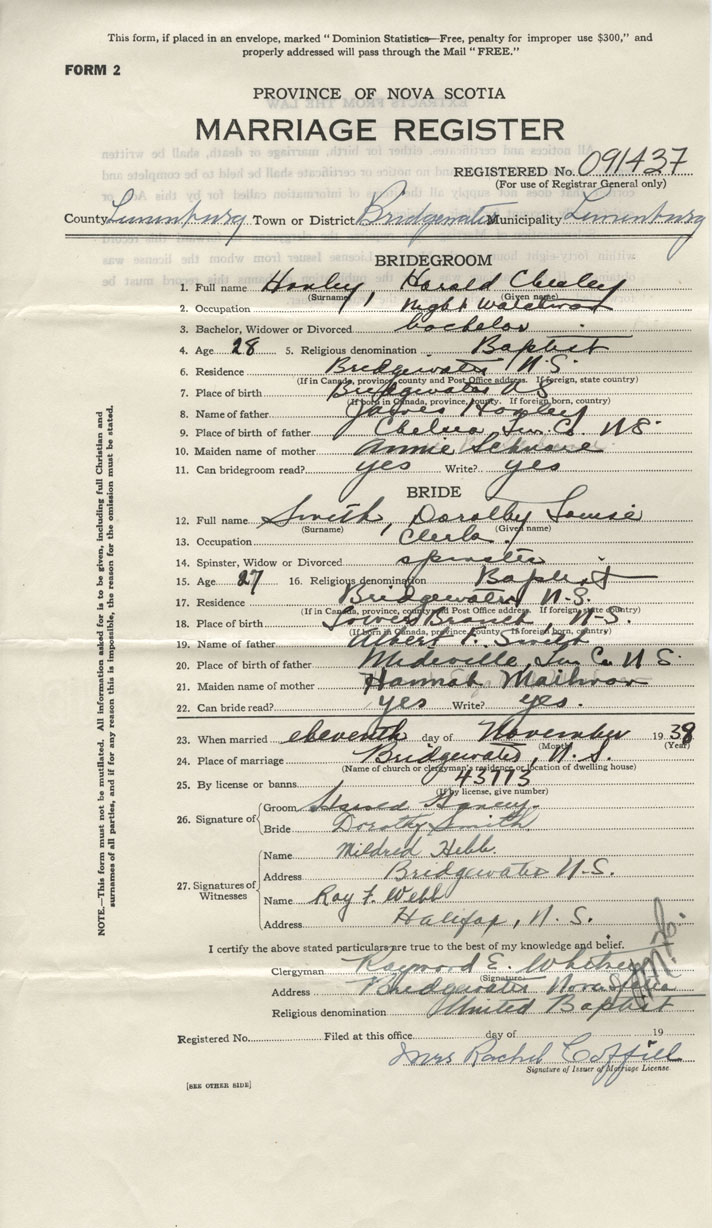 This form, if placed in an envelope, marked "Dominion Statistics—Free, penalty for improper use $300," and
properly addressed will pass through the Mail "FREE."
FORM 2
PROVINCE OF NOVA SCOTIA
MARRIAGE REGISTER
REGISTERED No. 091437
(For use of Registrar General only)
County Lunenburg Town or District Bridgewater Municipality Lunenburg
BRIDEGROOM
1. Full name Harold
(Surname) (Given name)
2. Occupation Night Watchman
3. Bachelor, Widower or Divorced bachelor
4. Age 28 5. Religious denomination Baptist
6. Residence Bridgewater N.S.
(If in Canada, province, county and Post Office address. If foreign, state country)
7. Place of birth Bridgewater N.S.
(If born in Canada, province, county. If foreign born, country)
8. Name of father James
9. Place of birth of father Chelsea, Lun. Co. N.S.
10. Maiden name of mother Annie
11. Can bridegroom read? yes Write? yes
BRIDE
12. Full name Smith, Dorothy Louise
(Surname) (Given name)
13. Occupation Clerk.
14. Spinster, Widow or Divorced spinster
15. Age 27 16. Religious denomination Baptist
17. Residence Bridgewater, N.S.
(If in Canada, province, county and Post Office address. If foreign, state country)
18. Place of birth Lower Branch, N.S.
(If born in Canada, province, county. If foreign born, country)
19. Name of father Albert F. Smith
20. Place of birth of father Lun Co N.S.
21. Maiden name of mother Hannah
22. Can bride read? yes Write? yes.
23. When married eleventh day of November 1938
(Month) (Year)
24. Place of marriage Bridgewater, N.S.
(Name of church or clergyman's residence or location of dwelling house)
25. By license or banns 43773
(If by license, give number)
26. Signature of
Groom Harold
Bride Dorothy Smith
27. Signatures of Witnesses
Name Mildred Hebb.
Address Bridgewater N.S.
Name Ray F. Webb
Address Halifax, N.S.
I certify the above stated particulars are true to the best of my knowledge and belief.
Clergyman Raymond E.
(Signature)
Address Bridgewater Nova Scotia
Religious denomination United Baptist
Registered No. Filed at this office day of 19
Mrs Rachel Coffill
Signature of Issuer of Marriage License
[SEE OTHER SIDE]
NOTE.—This form must not be mutilated. All information asked for is to be given, including full Christian and
surnames of all parties, and if for any reason this is impossible, the reason for the omission must be stated.